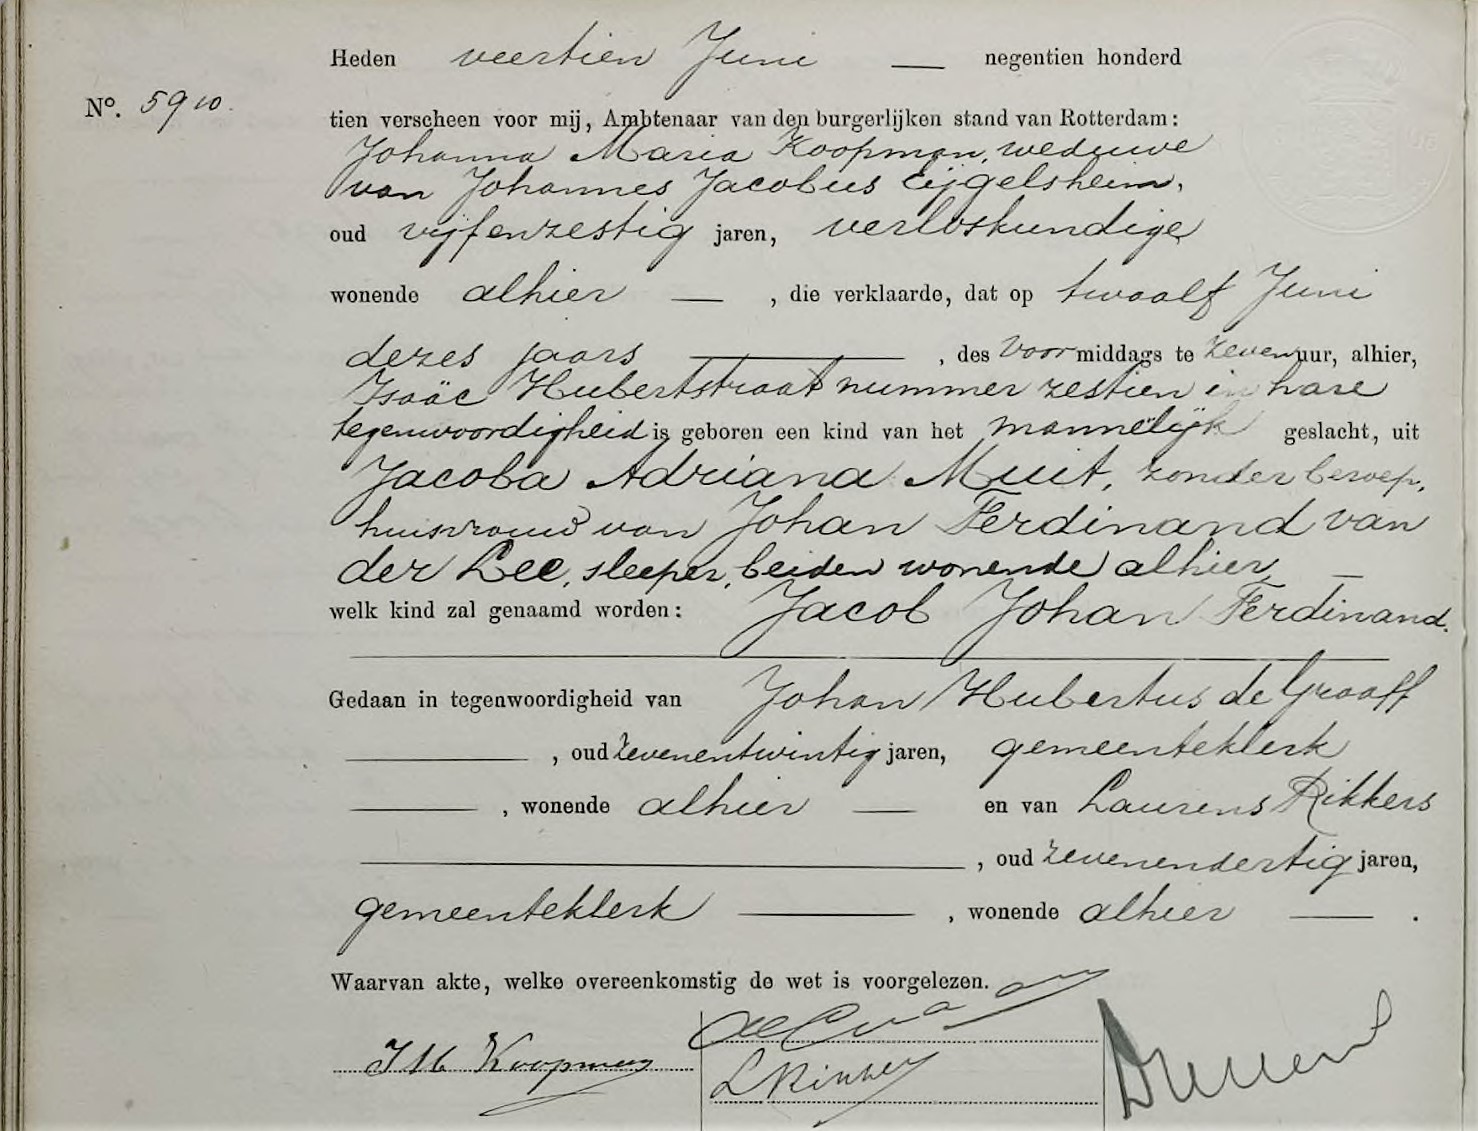 Heden veertien Juni — negentien honderd
No. 5910.
tien verscheen voor mij, Ambtenaar van den burgerlijken stand van Rotterdam:
Johanna Maria Koopman, weduwe
van Johannes Jacobus Eijgelsheim,
oud vijfenzestig jaren, verloskundige
wonende alhier — , die verklaarde, dat op twaalf Juni
dezes jaars — , des Voormiddags te zeven uur, alhier,
Isaäc Hubertstraat nummer zestien in hare
tegenwoordigheid is geboren een kind van het mannelijk geslacht, uit
Jacoba Adriana Muit, zonder beroep,
huisvrouw van Johan Ferdinand van
der Lee, sleeper, beiden wonende alhier, —
welk kind zal genaamd worden: Jacob Johan Ferdinand.
Gedaan in tegenwoordigheid van Johan Hubertus de Graaff
— , oud zevenentwintig jaren, gemeenteklerk
— , wonende alhier — en van Laurens Rikkers
— , oud zevenendertig jaren,
gemeenteklerk — , wonende alhier — .
Waarvan akte, welke overeenkomstig de wet is voorgelezen.
J M Koopman
L Rikkers